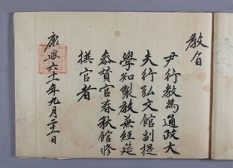 教旨
尹行教為通政大
夫行弘文館副提
學知製教兼經筵
參贊官春秋館修
撰官者
康熙六十一年九月二十一日